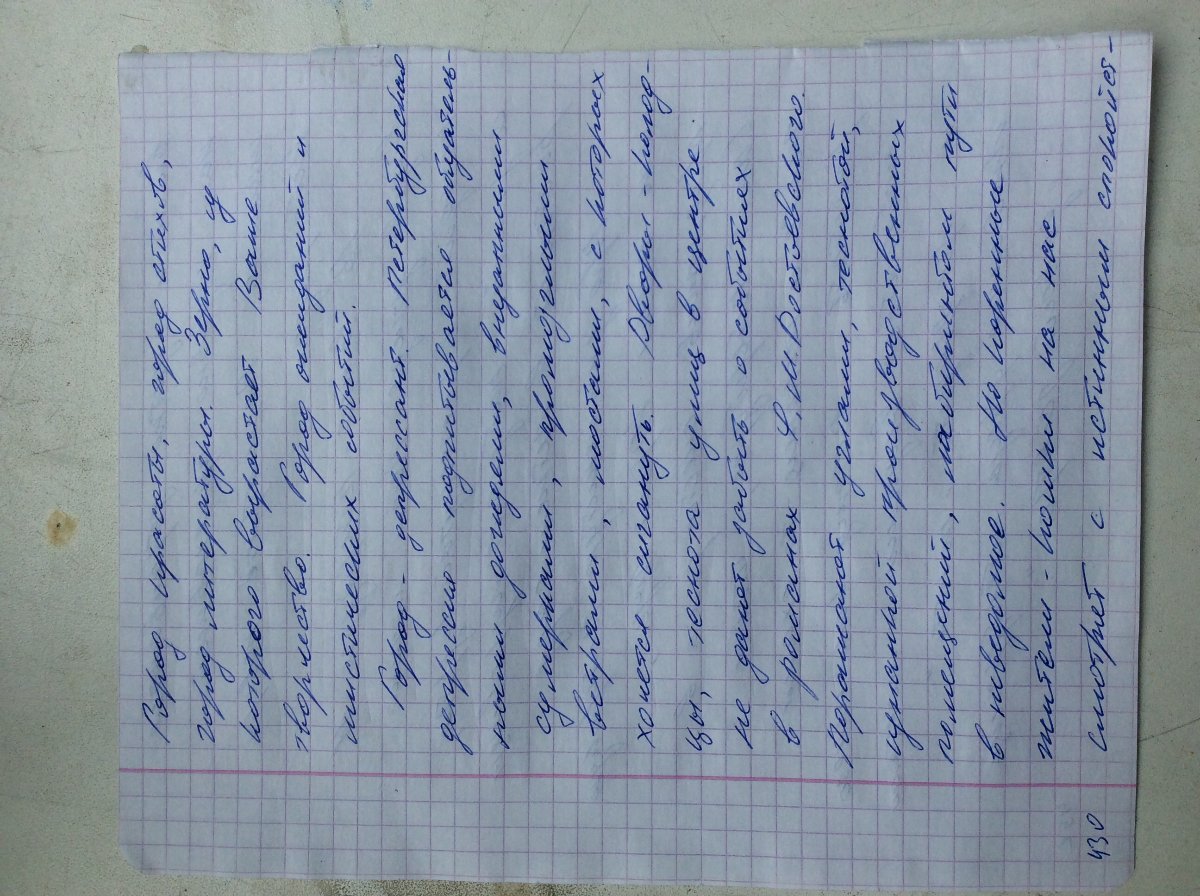 Город красоты, город стихов,
город литературы. Зерно, из
которого вырастает Ваше
творчество. Город ожиданий и
мистических событий.
Город - депрессант. Петербургская
депрессия подпитывается обязатель-
ными дождями, внезапными
сумерками, промозглыми
ветрами, мостами, с которых
хочется сигануть. Дворы-колод-
цы, теснота улиц в центре
не дают забыть о событиях
в романах Ф.М. Достоевского.
Поражают углами, теснотой,
изнанкой производственных
помещений, лабиринтом пути
в неведомое. Но коренные
жители - кошки на нас
смотрят с истинным спокойст-
430